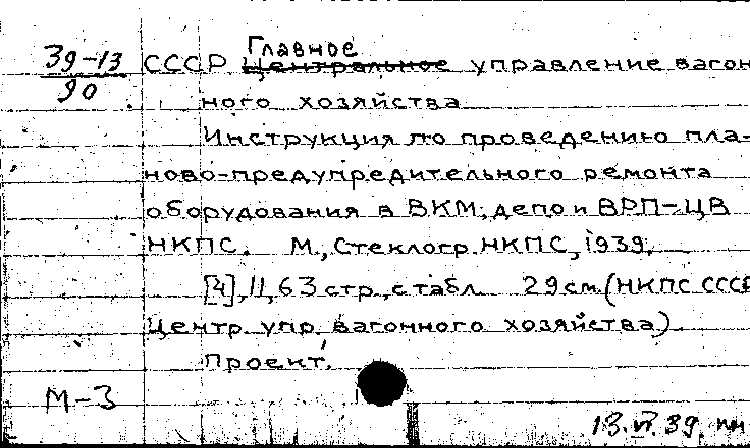 39-13
90
Главное
СССР Центральное управление вагон
ного хозяйства
Инструкция по проведению пла-
ново-предупредительного ремонта
оборудования в ВКМ, депо и ВРП-ЦВ
НКПС. М., Стеклогр. НКПС, 1939.
[4], II, 63 стр., с табл. 29 см. (НКПС СССР
Центр. упр. вагонного хозяйства)
Проект.
М-3
13.VI.39